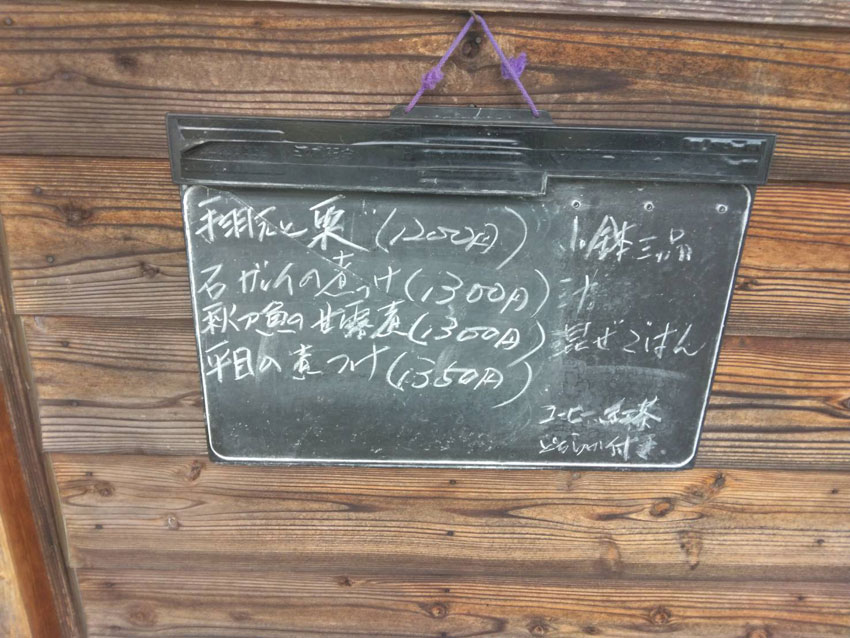 と栗 (1200円)
石ガレイの煮つけ (1300円)
秋刀魚の甘露煮 (1300円)
平目の煮つけ (1350円)
小鉢三品
汁
混ぜごはん
コーヒー、紅茶
どちらか付